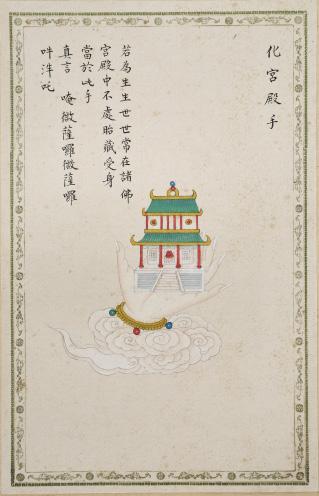 化宮殿手
若為生生世世常在諸佛
宮殿中不處胎藏受身
當於此手
真言 唵微薩囉微薩囉
吽泮吒